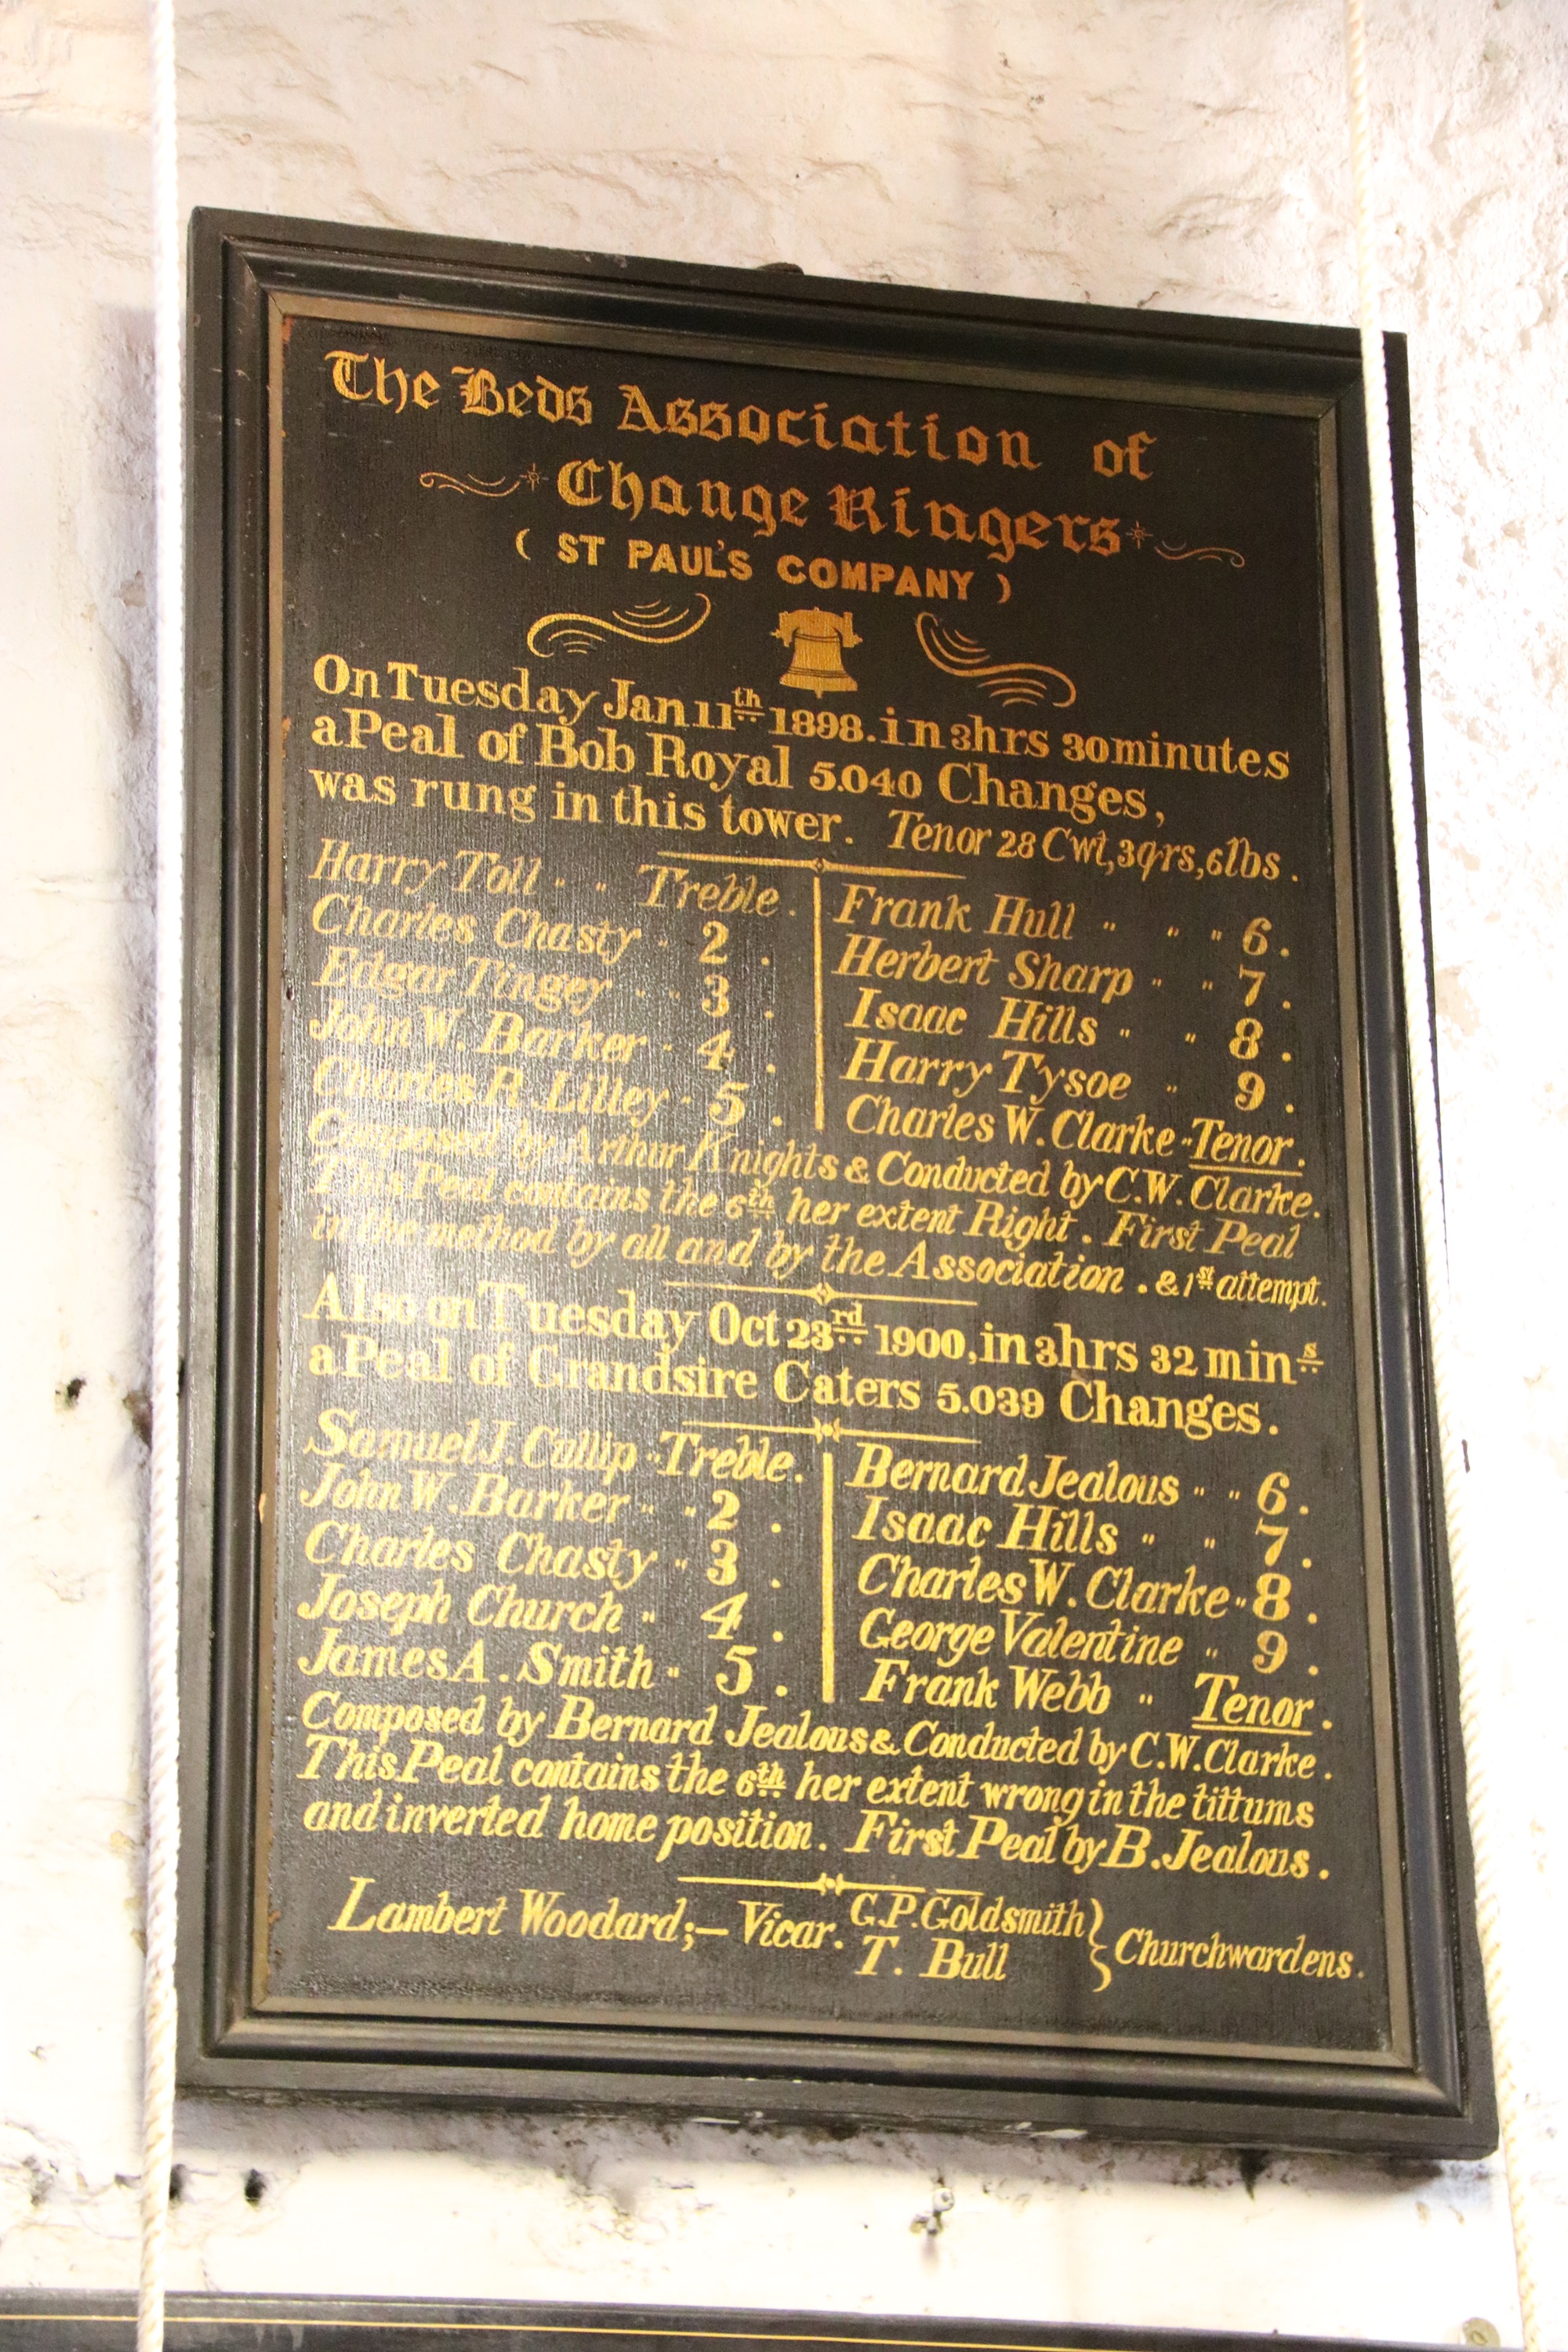 The Beds Association of
Change Ringers
( ST PAUL'S COMPANY )
On Tuesday Jan 11th 1898. in 3hrs 30 minutes
a Peal of Bob Royal 5.040 Changes,
was rung in this tower. Tenor 28 Cwt, 3qrs, 6lbs.
Harry Toll " " Treble. Frank Hull " " " 6.
Charles Chasty " 2. Herbert Sharp " " 7.
Edgar Tingey " " 3. Isaac Hills " " 8.
John W. Barker " 4. Harry Tysoe " 9.
Charles R. Lilley " 5. Charles W. Clarke " Tenor.
Composed by Arthur Knights & Conducted by C.W. Clarke.
This Peal contains the 6th her extent Right. First Peal
in the method by all and by the Association. & 1st attempt.
Also on Tuesday Oct 23rd 1900, in 3hrs 32 mins
a Peal of Grandsire Caters 5.039 Changes.
Samuel J. Cullip " Treble. Bernard Jealous " " 6.
John W. Barker " " 2. Isaac Hills " " 7.
Charles Chasty " 3. Charles W. Clarke " 8.
Joseph Church " 4. George Valentine " 9.
James A. Smith " 5. Frank Webb " Tenor.
Composed by Bernard Jealous & Conducted by C.W. Clarke.
This Peal contains the 6th her extent wrong in the tittums
and inverted home position. First Peal by B. Jealous.
Lambert Woodard;– Vicar. G.P. Goldsmith } Churchwardens.
T. Bull